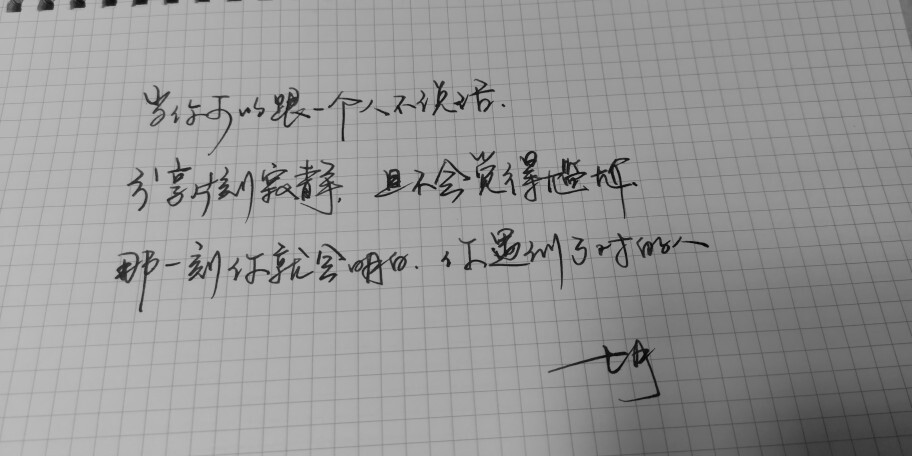 当你可以跟一个人不说话.
分享片刻寂静. 且不会觉得尴尬.
那一刻你就会明白. 你遇到了对的人